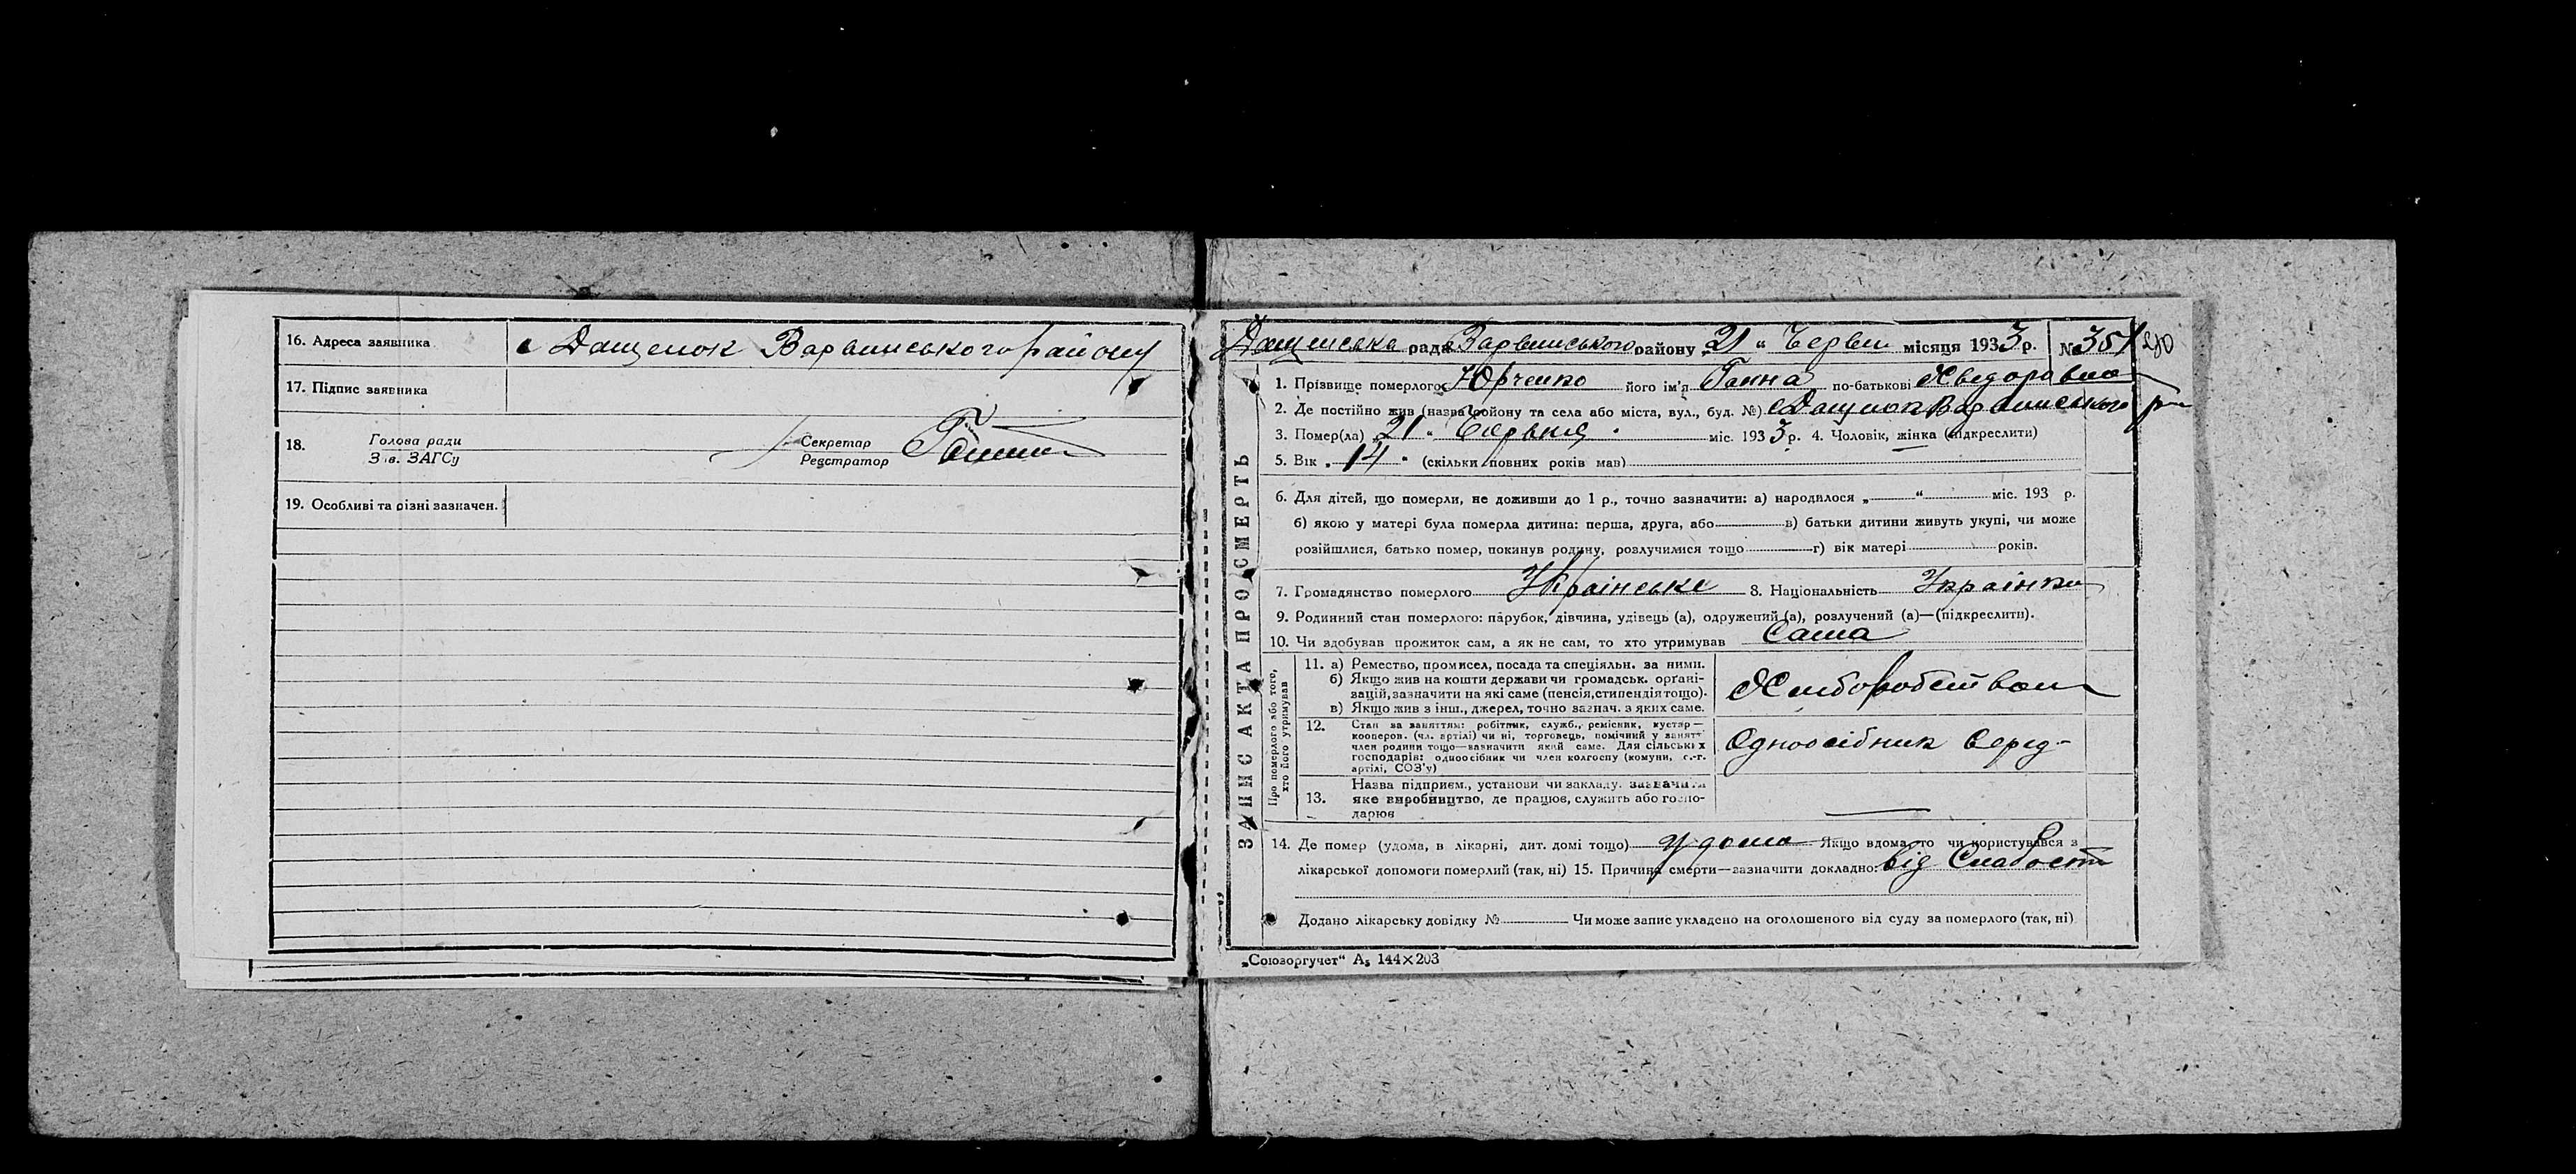 16. Адреса заявника с Дащенок Варвинського району
17. Підпис заявника
18. Голова ради Секретар
Зав. ЗАГСу Реєстратор
19. Особливі та різні зазначен.
ЗАПИС АКТА ПРО СМЕРТЬ
Дащенська рада Варвинського району „21“ Червня місяця 1933 р. № 351
1. Прізвище померлого Юрченко його ім'я Ганна по-батькові Хведоровна
2. Де постійно жив (назва району та села або міста, вул., буд. №) с Дащенок Варвинського р-ну
3. Помер(ла) „21“ Червня міс. 1933 р. 4. Чоловік, жінка (підкреслити)
5. Вік „14“ (скільки повних років мав)
6. Для дітей, що померли, не доживши до 1 р., точно зазначити: а) народилося „ “ міс. 193 р.
б) якою у матері була померла дитина: перша, друга, або в) батьки дитини живуть укупі, чи може
розійшлися, батько помер, покинув родину, розлучилися тощо г) вік матері років.
7. Громадянство померлого Українське 8. Національність Українка
9. Родинний стан померлого: парубок, дівчина, удівець (а), одружений (а), розлучений (а)—(підкреслити).
10. Чи здобував прожиток сам, а як не сам, то хто утримував Сама
Про померлого або того,
хто його утримував
11. а) Ремество, промисел, посада та спеціяльн. за ними.
б) Якщо жив на кошти держави чи громадськ. органі-
зацій, зазначити на які саме (пенсія, стипендія тощо).
в) Якщо жив з інш., джерел, точно зазнач. з яких саме.
Хліборобством
12. Стан за заняттям: робітник, служб., ремісник, кустар—
кооперов. (чл. артілі) чи ні, торговець, помічний у занятт
член родини тощо—зазначити який саме. Для сільських
господарів: одноосібник чи член колгоспу (комуни, с.-г.
артілі, СОЗ'у)
Одноосібник Серед-
13. Назва підприєм., установи чи закладу. зазначити
яке виробництво, де працює, служить або госпо-
дарює
14. Де помер (удома, в лікарні, дит. домі тощо) у дома Якщо вдома, то чи користувався з
лікарської допомоги померлий (так, ні) 15. Причина смерти—зазначити докладно: Від Слабости
Додано лікарську довідку № Чи може запис укладено на оголошеного від суду за померлого (так, ні)
„Союзоргучет“ А₅ 144×203